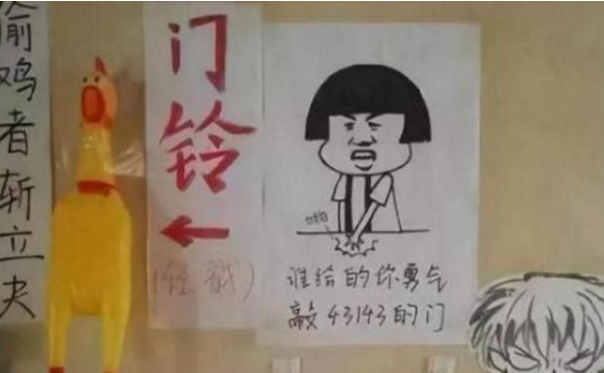 偷鸡者斩立决
门铃
←
(轻戳)
啪
谁给的你勇气
敲43143的门